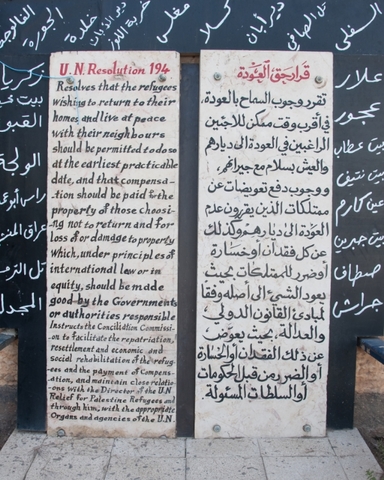 U.N. Resolution 194
Resolves that the refugees
wishing to return to their
homes and live at peace
with their neighbours
should be permitted to do so
at the earliest practicable
date, and that compensa-
-tion should be paid to the
property of those choosi-
-ng not to return and for
loss or damage to property
which, under principles of
international law or in
equity, should be made
good by the Governments
or authorities responsible
Instructs the Conciliation Commissi-
on to facilitate the repatriation,
resettlement and economic and
social rehabilitation of the refug-
ees and the payment of Compens-
ation, and maintain close relatio-
ns with the Director of the U.N
Relief for Palestine Refugees and
through him, with the appropriate
Organs and agencies of the U.N.
قرار حق العودة
تقرر وجوب السماح بالعودة،
في أقرب وقت ممكن للاجئين
الراغبين في العودة الى ديارهم
والعيش بسلام مع جيرانهم،
ووجوب دفع تعويضات عن
ممتلكات الذين يقررون عدم
العودة الى ديارهم وكذلك
عن كل فقدان أو خسارة
أو ضرر للممتلكات بحيث
يعود الشيء الى أصله وفقا
لمبادئ القانون الدولي
والعدالة، بحيث يعوض
عن ذلك الفقدان أو الخسارة
أو الضرر من قبل الحكومات
أو السلطات المسئولة
السفلى
تل الصافي
دير أبان
كلا
مغلس
خربة اللوز
الجورة
علار
عجور
بيت عطاب
بيت نتيف
عين كارم
بيت جبرين
جراش
زكريا
القبو
الولجة
تل الترمس
المجدل